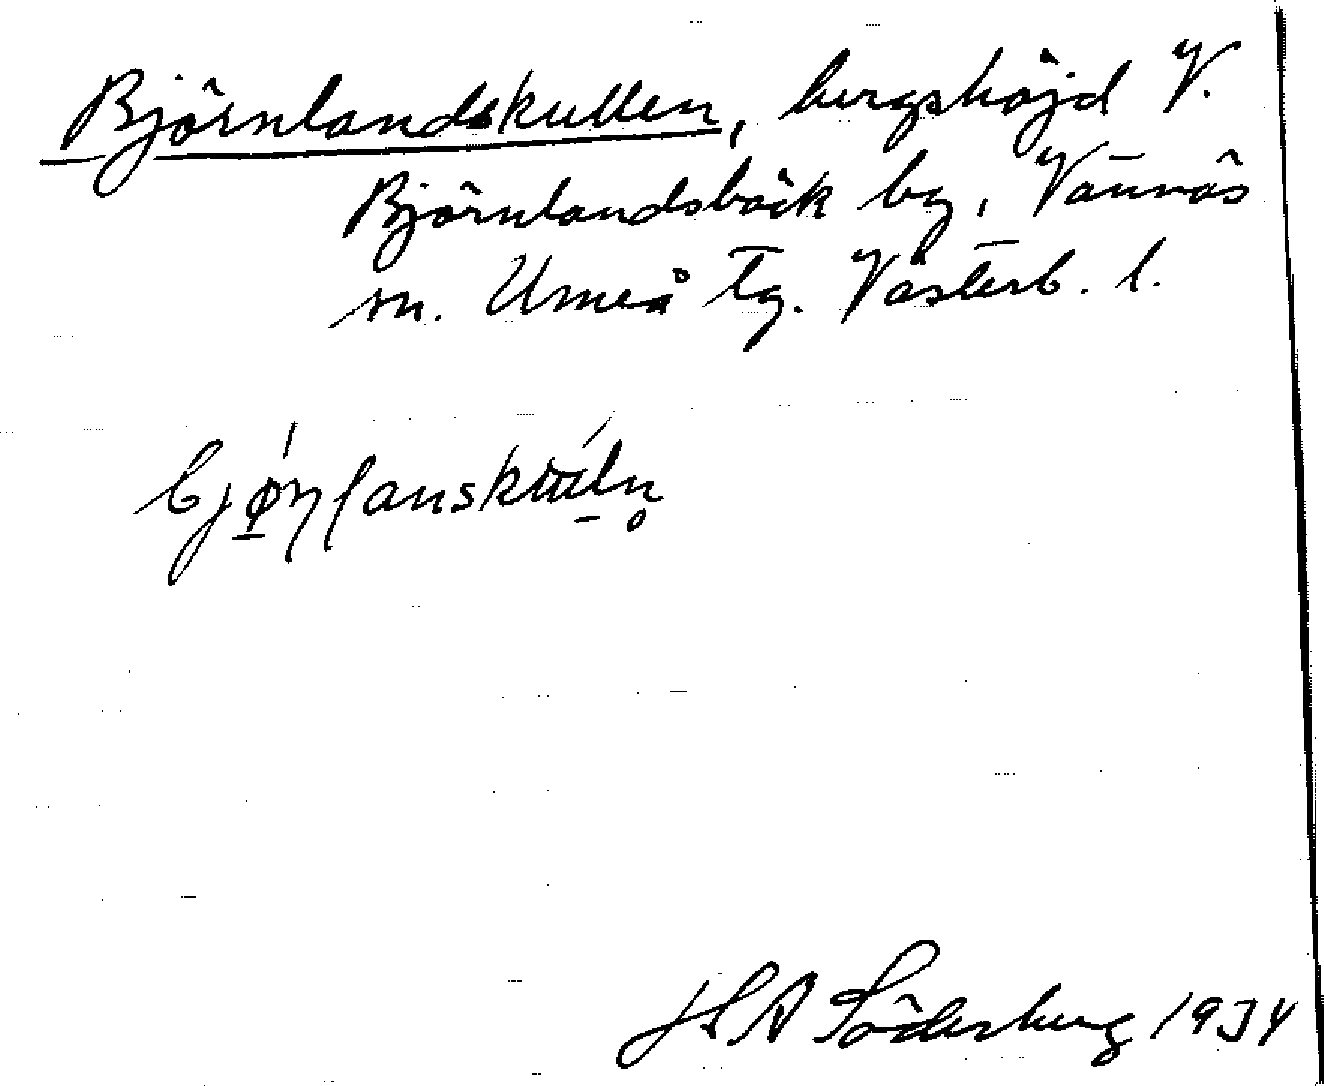 Björnlandskullen, bergshöjd V.
Björnlandsbäck by, Vännäs
sn. Umeå tg. Västerb. l.
H S A Söderberg 1934